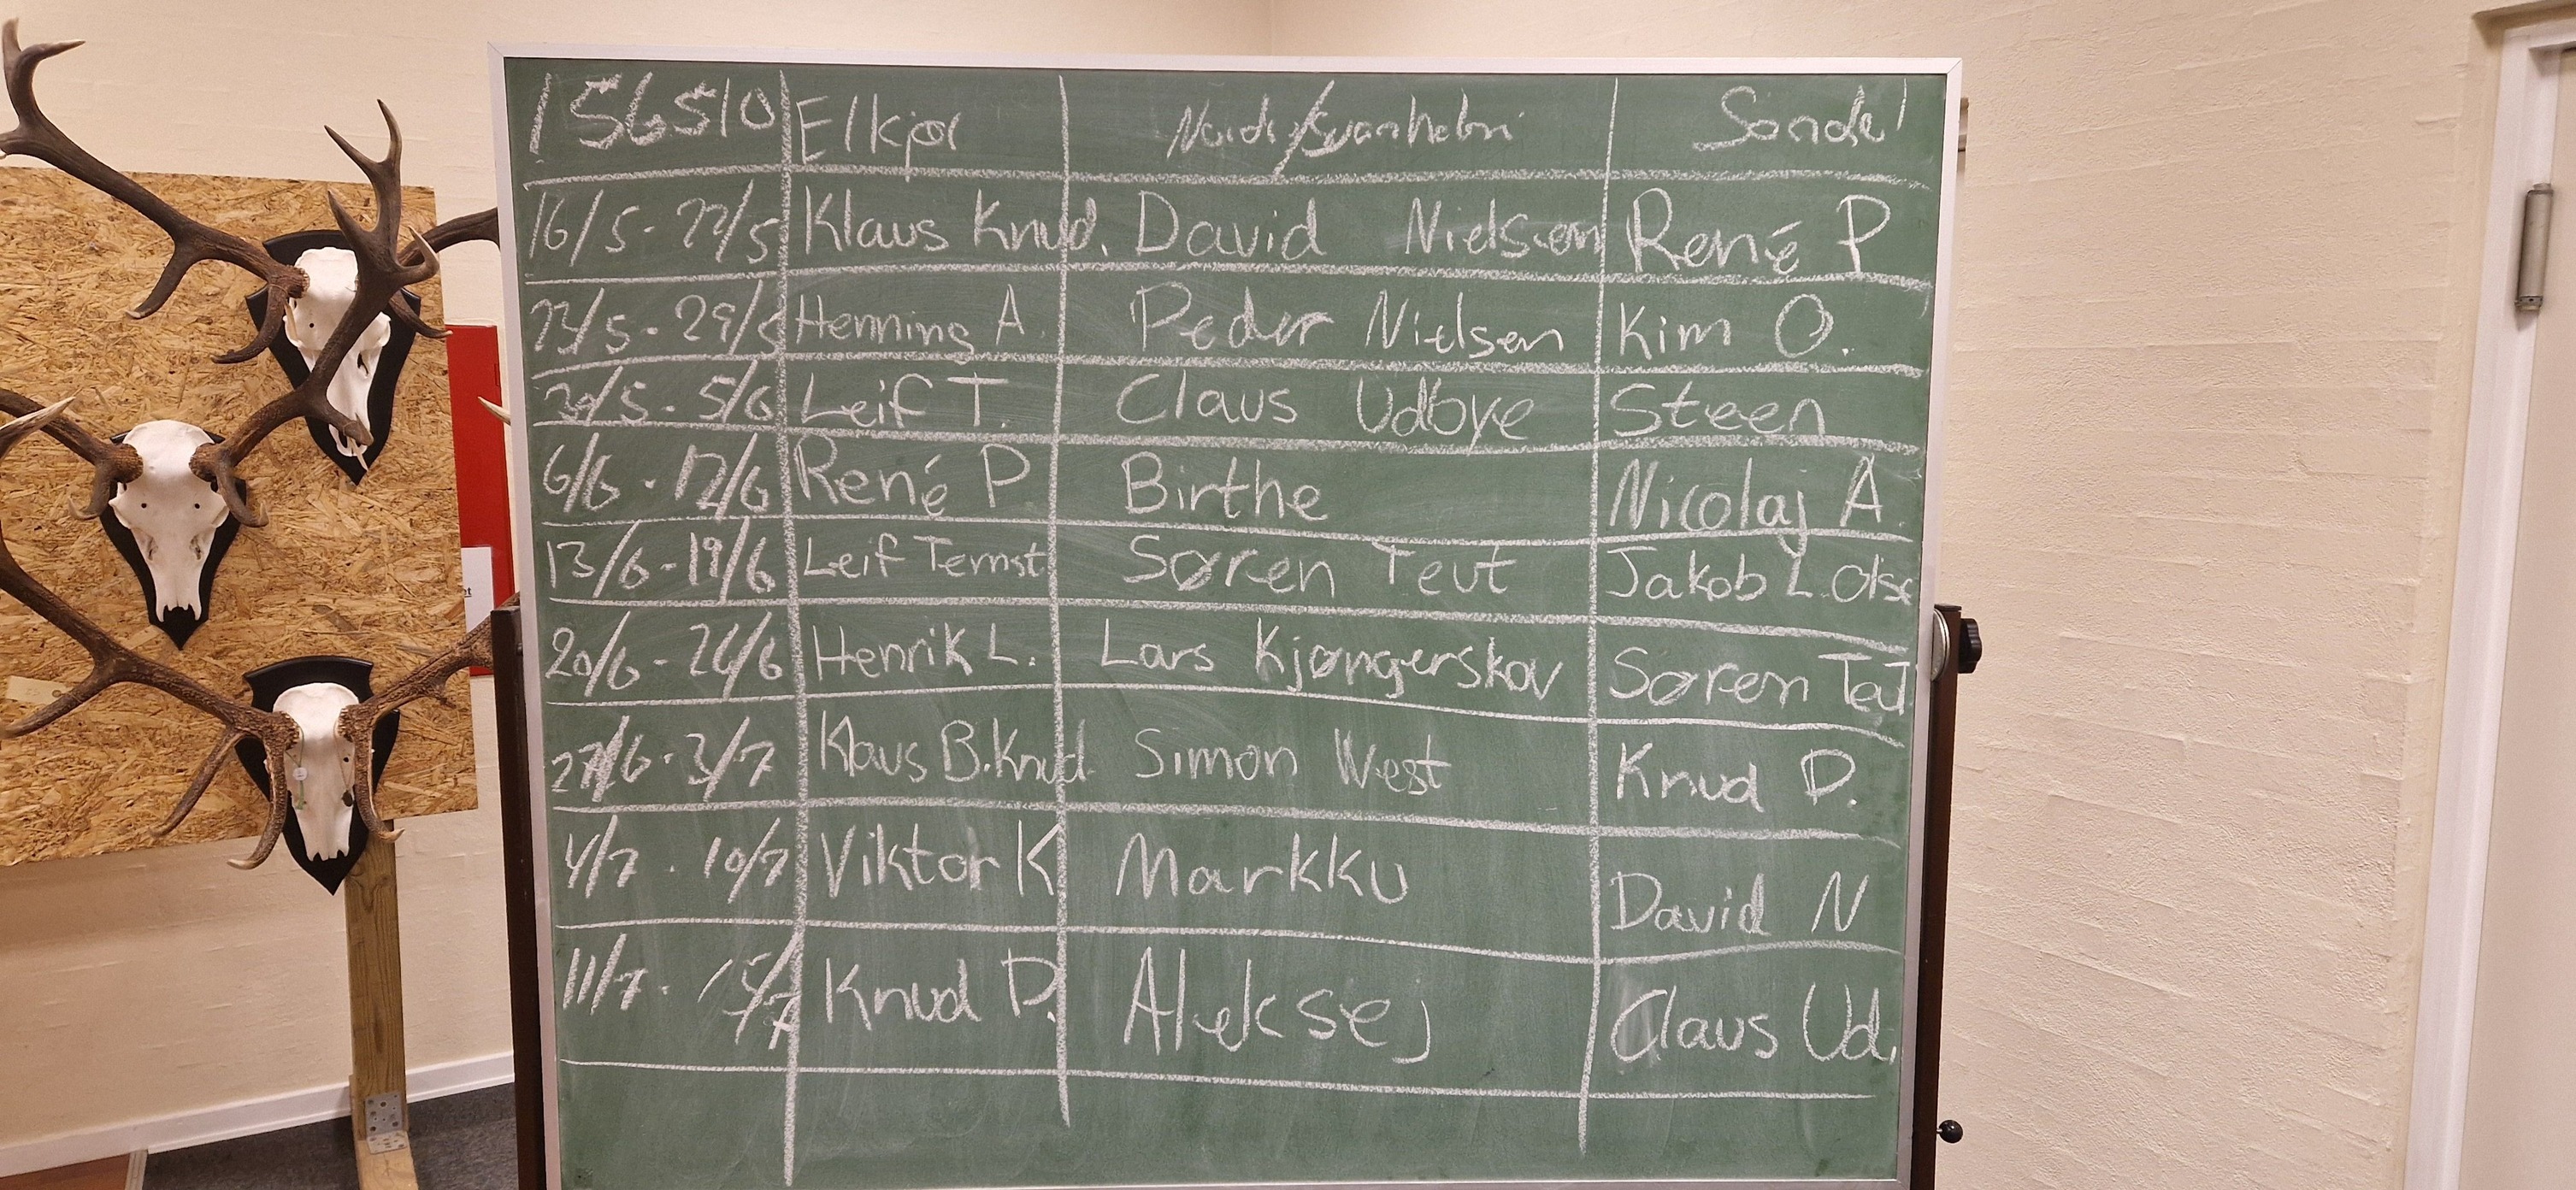 156510 Elkjær Sønde
16/5 - 22/5 Klaus Knud. David Nielsen René P
23/5 - 29/5 Henning A. Peder Nielsen Kim O.
30/5 - 5/6 Leif T. Claus Udbye Steen
6/6 - 12/6 René P Birthe Nicolaj A.
13/6 - 19/6 Leif Ternst Søren Teut Jakob L. Olse
20/6 - 26/6 Henrik L. Lars Kjøngerskov Søren Teut
27/6 - 3/7 Klaus B. Knud. Simon West Knud D.
4/7 - 10/7 Viktor K Markku David N
11/7 - 15/7 Knud D. Aleksej Claus Ud.